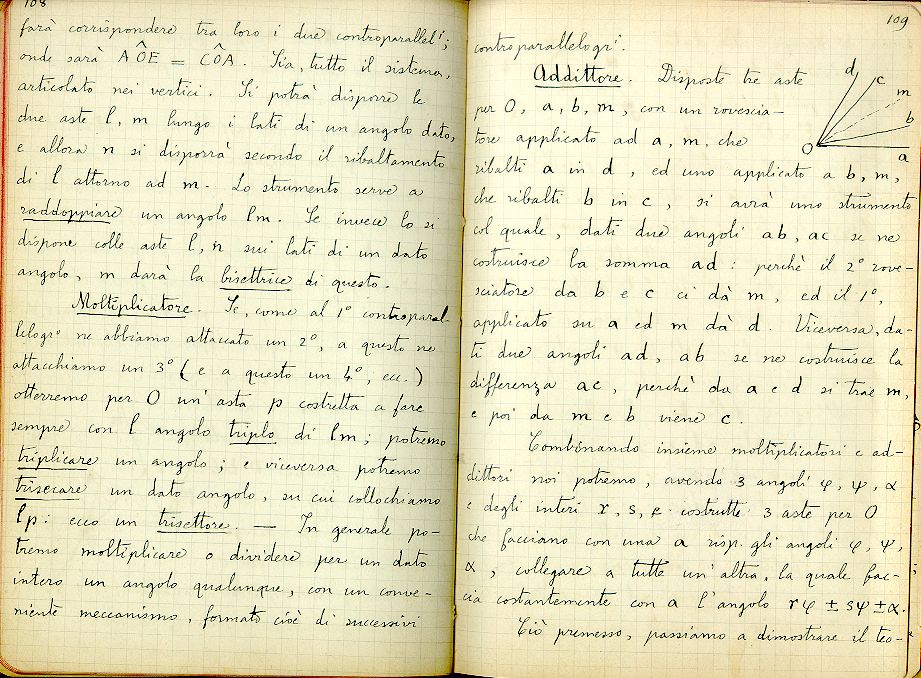 108
farà corrispondere tra loro i due controparallelⁱ;
onde sarà AÔE = CÔA. Sia, tutto il sistema,
articolato nei vertici. Si potrà disporre le
due aste l, m lungo i lati di un angolo dato,
e allora n si disporrà secondo il ribaltamento
di l attorno ad m. Lo strumento serve a
raddoppiare un angolo lm. Se invece lo si
dispone colle aste l, n sui lati di un dato
angolo, m darà la bisettrice di questo.
Moltiplicatore. Se, come al 1° controparal-
lelogr° ne abbiamo attaccato un 2°, a questo ne
attacchiamo un 3° (e a questo un 4°, ecc.)
otterremo per O un'asta p costretta a fare
sempre con l angolo triplo di lm; potremo
triplicare un angolo; e viceversa potremo
trisecare un dato angolo, su cui collochiamo
lp: ecco un trisettore. — In generale po-
tremo moltiplicare o dividere per un dato
intero un angolo qualunque, con un conve-
niente meccanismo, formato cioè di successivi
109
controparallelogrⁱ.
Addittore. Disposte tre aste
per O, a, b, m, con un rovescia-
tore applicato ad a, m, che
ribalti a in d, ed uno applicato a b, m,
che ribalti b in c, si avrà uno strumento
col quale, dati due angoli ab, ac se ne
costruisce la somma ad: perchè il 2° rove-
sciatore da b e c ci dà m, ed il 1°,
applicato su a ed m dà d. Viceversa, da-
ti due angoli ad, ab se ne costruisce la
differenza ac, perchè da a e d si trae m,
e poi da m e b viene c.
Combinando insieme moltiplicatori e ad-
dittori noi potremo, avendo 3 angoli φ, ψ, α
e degli interi r, s, e costrutte 3 aste per O
che facciano con una a risp. gli angoli φ, ψ,
α, collegare a tutte un'altra, la quale fac-
cia costantemente con a l'angolo rφ ± sψ ± α.
Ciò premesso, passiamo a dimostrare il teo-
d
c
m
b
a
O